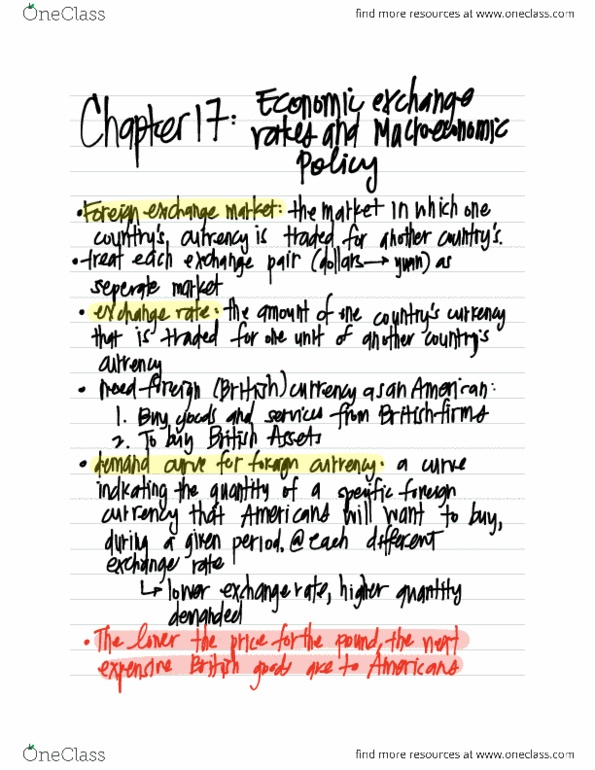 OneClass
find more resources at www.oneclass.com
Chapter 17: Economic exchange
rates and Macroeconomic
Policy
• Foreign exchange market: the market in which one
country's, currency is traded for another country's.
• treat each exchange pair (dollars → yuan) as
seperate market
• exchange rate: the amount of one country's currency
that is traded for one unit of another country's
currency
• need foreign (British) currency as an American:
1. Buy goods and services from British firms
2. To buy British Assets
• demand curve for foreign currency: a curve
indicating the quantity of a specific foreign
currency that Americans will want to buy,
during a given period, @ each different
exchange rate
↳ lower exchange rate, higher quantity
demanded
• The lower the price for the pound, the
expensive British goods are to Americans
OneClass
find more resources at www.oneclass.com